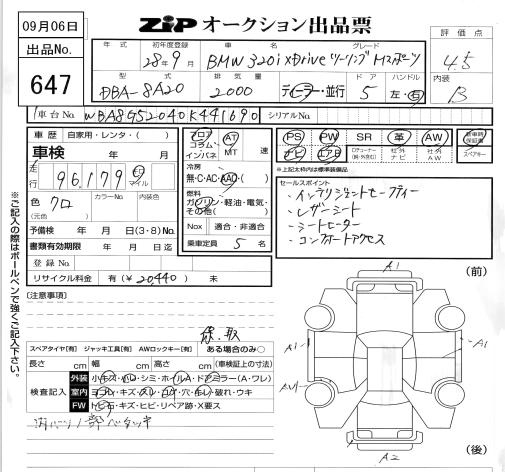 09月06日
ZIP オークション出品票
出品No.
647
評価点
4.5
内装
B
年式 初年度登録 車名 グレード
28年9月 BMW 320i xDrive ツーリング Mスポーツ
型式 排気量 ドア ハンドル
DBA-8A20 2000 ディーラー・並行 5 左・右
車台No. WBA8G52040K441690 シリアルNo.
車歴 自家用・レンタ・( )
車検 年 月
走行 96,179 km マイル
色 クロ カラーNo. 内装色
(元色)
予備検 年 月 日(3・8)No.
書類有効期限 年 月 日迄
登録No.
リサイクル料金 有(¥20,440) 未
フロア コラム インパネ AT MT 速
冷房
無・C・AC・AAC・( )
燃料
ガソリン・軽油・電気・その他( )
Nox 適合・非適合
乗車定員 5 名
PS PW SR 革 AW 新車時保証書
ナビ エアB 社外ナビ 社外AW スペアキー
※上記太枠内は標準装備品
セールスポイント
・インテリジェントセーフティー
・レザーシート
・シートヒーター
・コンフォートアクセス
※ご記入の際はボールペンで強くご記入下さい。
[注意事項]
保、取
スペアタイヤ[有] ジャッキ工具[有] AWロックキー[有] ある場合のみ○
長さ cm 幅 cm 高さ cm (車検証上の寸法)
検査記入
外装 小キズ・凹・シミ・ホイールA・ドアミラー(A・ワレ)
室内 ヨゴレ・キズ・スレ・コゲ・穴・キレ・破れ・ウキ
FW トビ石・キズ・ヒビ・リペア跡・X要ス
内パーツ1部ベタツキ
(前)
A1
A1
A1
AW
A2
(後)